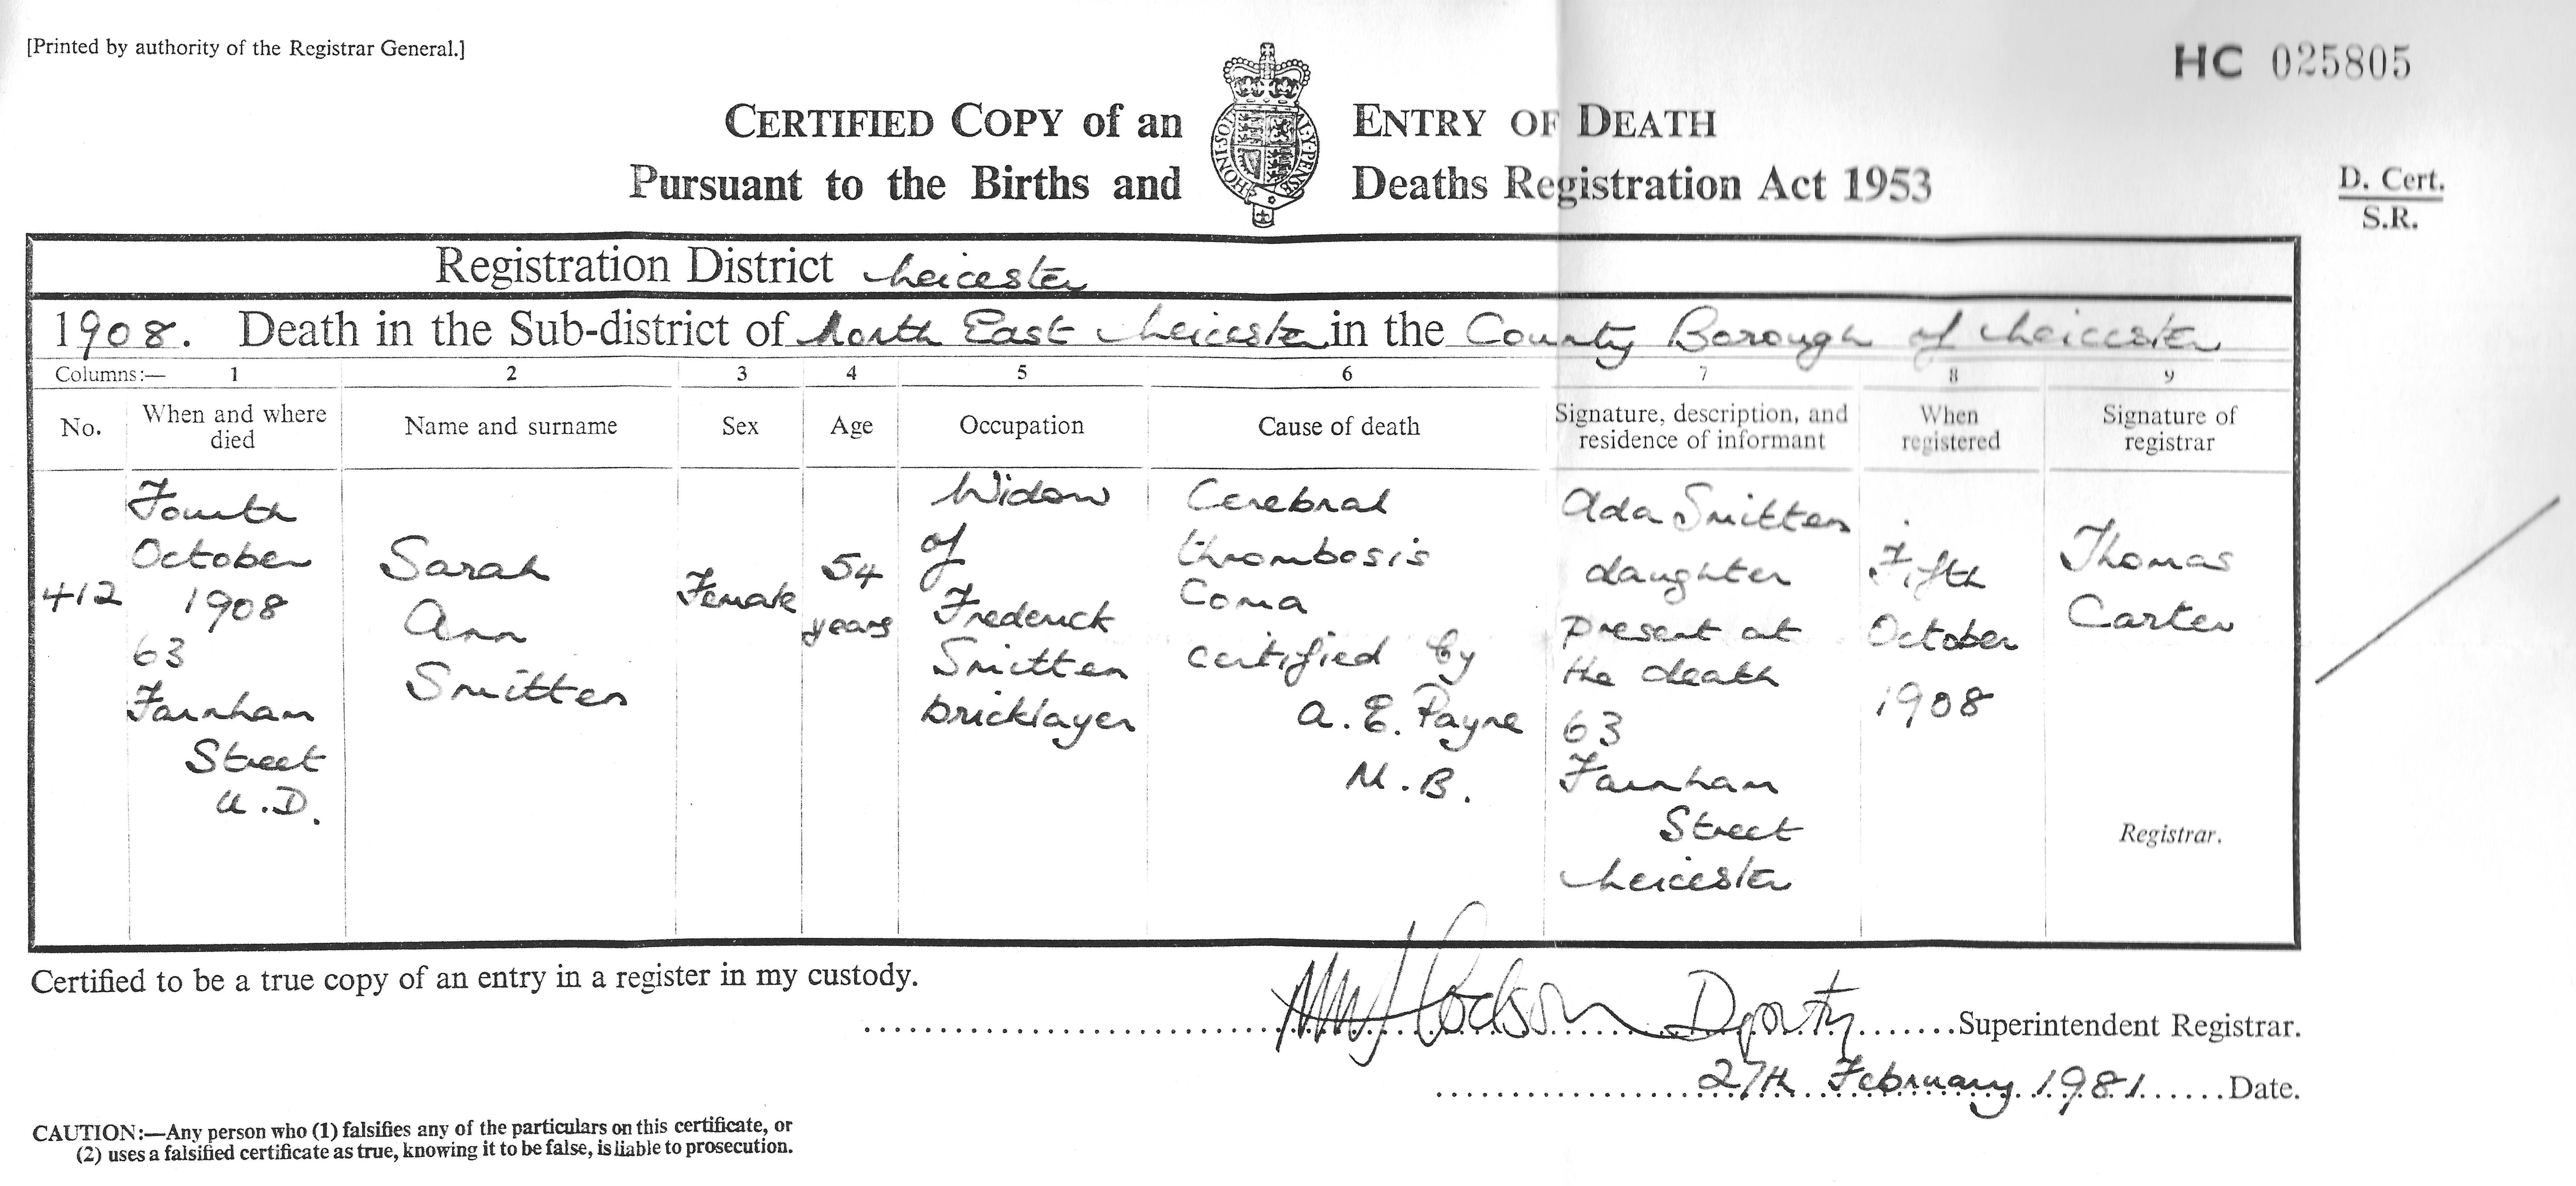 [Printed by authority of the Registrar General.]
HC 025805
CERTIFIED COPY of an ENTRY OF DEATH
Pursuant to the Births and Deaths Registration Act 1953
D. Cert.
S.R.
HONI·SOI AL·Y·PENSE
Registration District Leicester
1908. Death in the Sub-district of North East Leicester in the County Borough of Leicester
Columns:— 1 2 3 4 5 6 7 8 9
No.
When and where
died
Name and surname
Sex
Age
Occupation
Cause of death
Signature, description, and
residence of informant
When
registered
Signature of
registrar
412
Fourth
October
1908
63
Farnham
Street
U.D.
Sarah
Ann
Smitten
Female
54
years
Widow
of
Frederick
Smitten
bricklayer
Cerebral
thrombosis
Coma
certified by
A. E. Payne
M.B.
Ada Smitten
daughter
present at
the death
63
Farnham
Street
Leicester
Fifth
October
1908
Thomas
Carter
Registrar.
Certified to be a true copy of an entry in a register in my custody.
Hodson Deputy Superintendent Registrar.
27th February 1981 Date.
CAUTION:—Any person who (1) falsifies any of the particulars on this certificate, or
(2) uses a falsified certificate as true, knowing it to be false, is liable to prosecution.